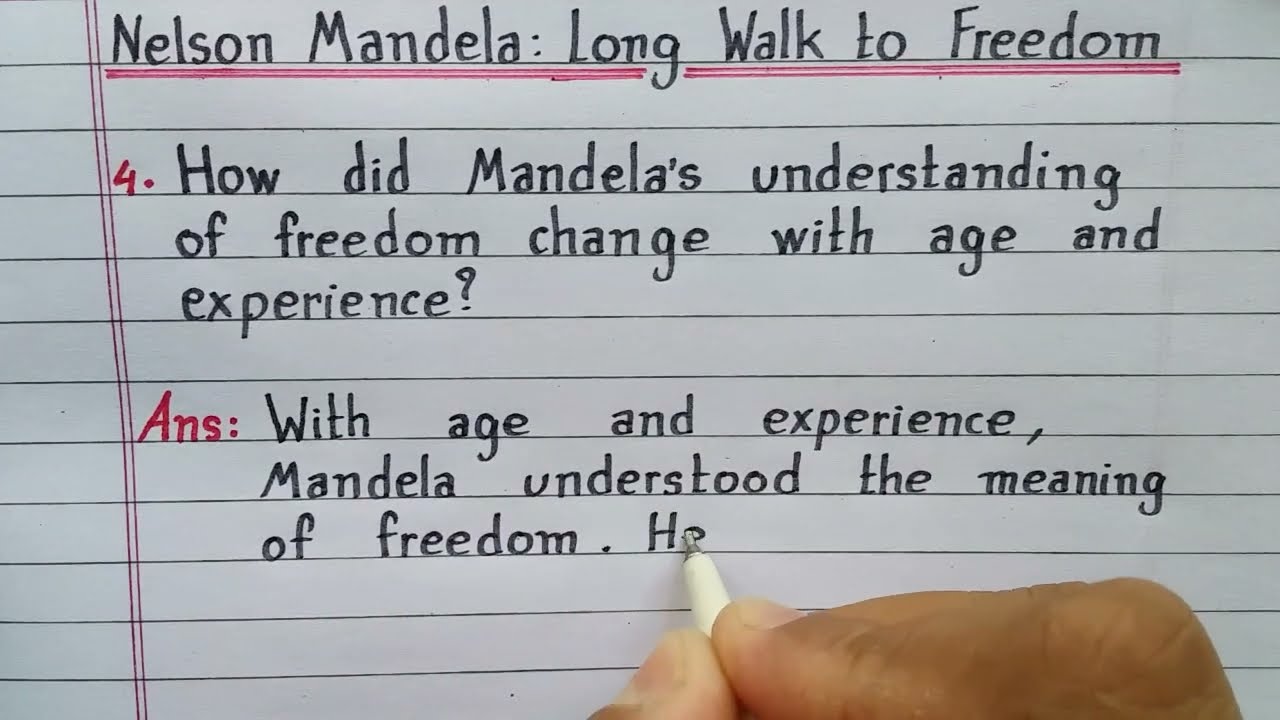 Nelson Mandela: Long Walk to Freedom
4. How did Mandela's understanding
of freedom change with age and
experience?
Ans: With age and experience,
Mandela understood the meaning
of freedom. He